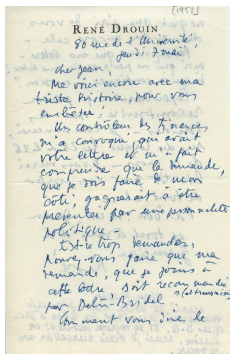 [1953]
RENÉ DROUIN
80 rue de l'Université,
jeudi 7 mai
cher Jean,
Me voici encore avec ma
triste histoire, pour vous
embêter.
Un contrôleur des Finances,
m'a convoqué, qui avait
votre lettre et m'a fait
comprendre que la demande,
que je dois faire de mon
côté, gagnerait à être
présentée par une personnalité
politique –
Est-ce trop demander,
pouvez-vous faire que ma
demande, que je joins à
cette lettre, soit recommandée
par Debû-Bridel.
Comment vous dire le